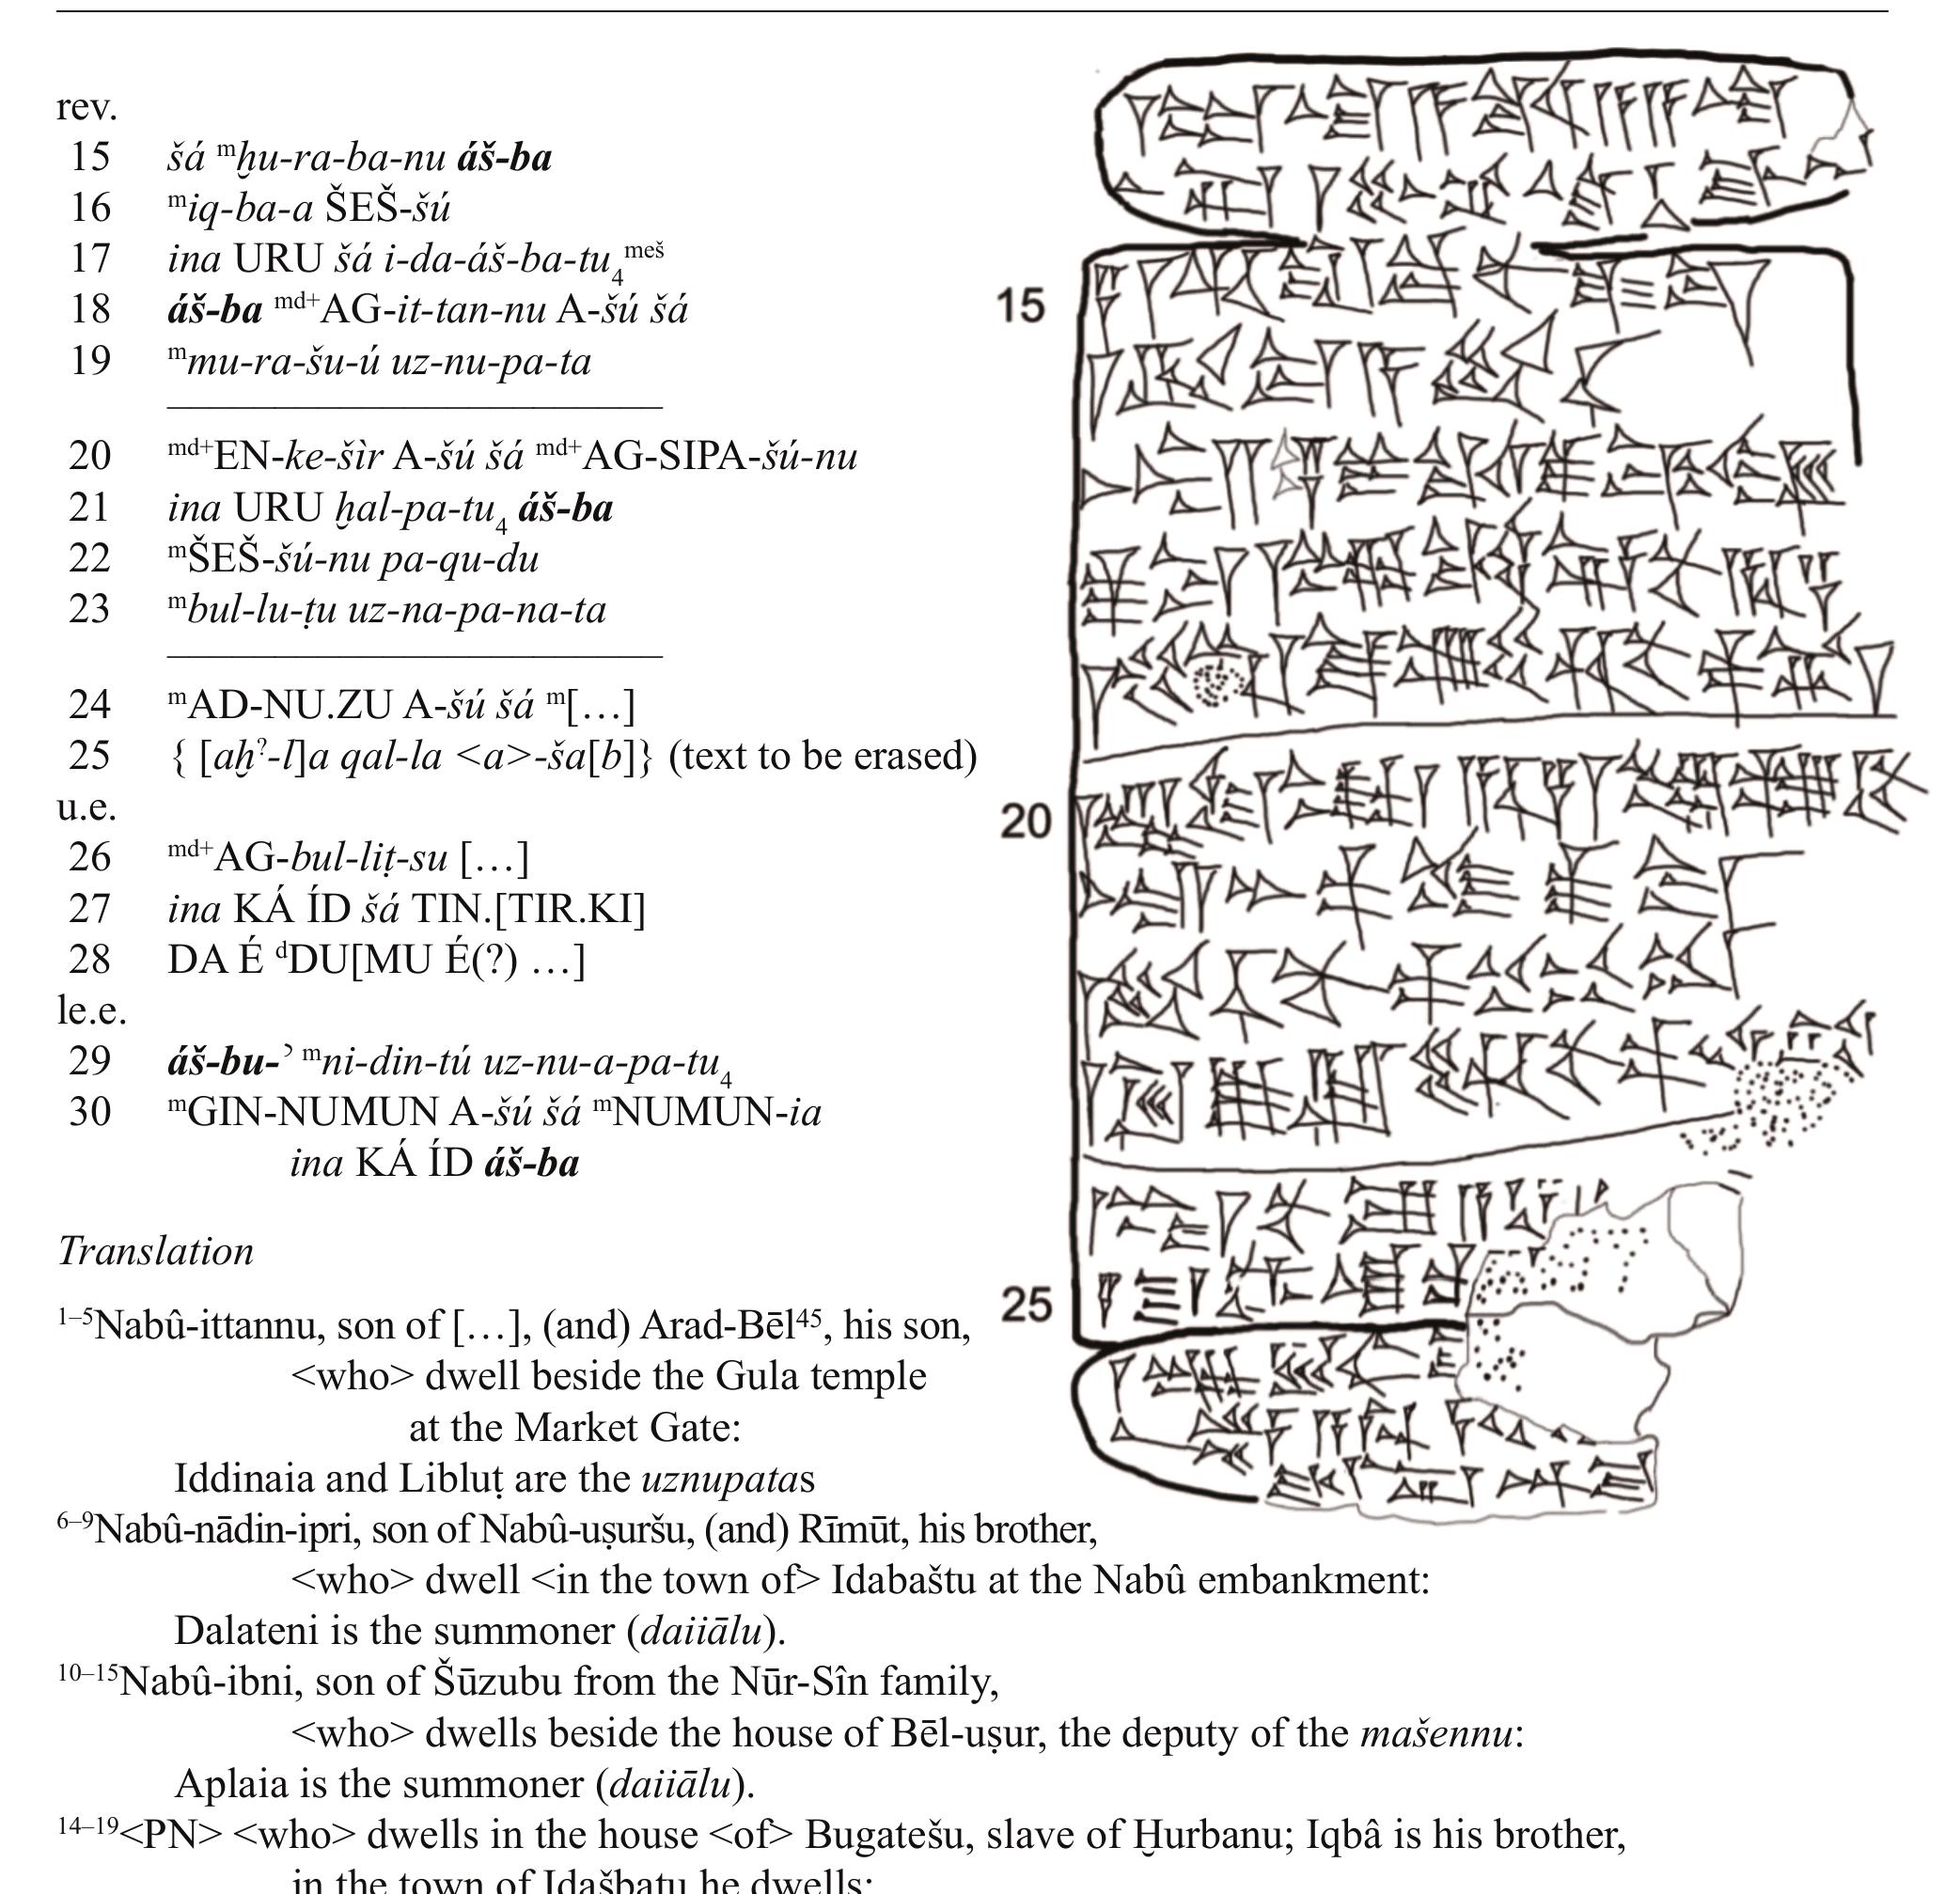 rev.
15 šá ᵐḫu-ra-ba-nu áš-ba
16 ᵐiq-ba-a ŠEŠ-šú
17 ina URU šá i-da-áš-ba-tu₄ᵐᵉš
18 áš-ba ᵐᵈ⁺AG-it-tan-nu A-šú šá
19 ᵐmu-ra-šu-ú uz-nu-pa-ta
20 ᵐᵈ⁺EN-ke-šìr A-šú šá ᵐᵈ⁺AG-SIPA-šú-nu
21 ina URU ḫal-pa-tu₄ áš-ba
22 ᵐŠEŠ-šú-nu pa-qu-du
23 ᵐbul-lu-ṭu uz-na-pa-na-ta
24 ᵐAD-NU.ZU A-šú šá ᵐ[…]
25 { [aḫ?-l]a qal-la <a>-ša[b]} (text to be erased)
u.e.
26 ᵐᵈ⁺AG-bul-liṭ-su […]
27 ina KÁ ÍD šá TIN.[TIR.KI]
28 DA É ᵈDU[MU É(?) …]
le.e.
29 áš-bu-ʾ ᵐni-din-tú uz-nu-a-pa-tu₄
30 ᵐGIN-NUMUN A-šú šá ᵐNUMUN-ia
ina KÁ ÍD áš-ba
15
20
25
Translation
1–5Nabû-ittannu, son of […], (and) Arad-Bēl⁴⁵, his son,
<who> dwell beside the Gula temple
at the Market Gate:
Iddinaia and Libluṭ are the uznupatas
6–9Nabû-nādin-ipri, son of Nabû-uṣuršu, (and) Rīmūt, his brother,
<who> dwell <in the town of> Idabaštu at the Nabû embankment:
Dalateni is the summoner (daiiālu).
10–15Nabû-ibni, son of Šūzubu from the Nūr-Sîn family,
<who> dwells beside the house of Bēl-uṣur, the deputy of the mašennu:
Aplaia is the summoner (daiiālu).
14–19<PN> <who> dwells in the house <of> Bugatešu, slave of Ḫurbanu; Iqbâ is his brother,
in the town of Idašbatu he dwells: